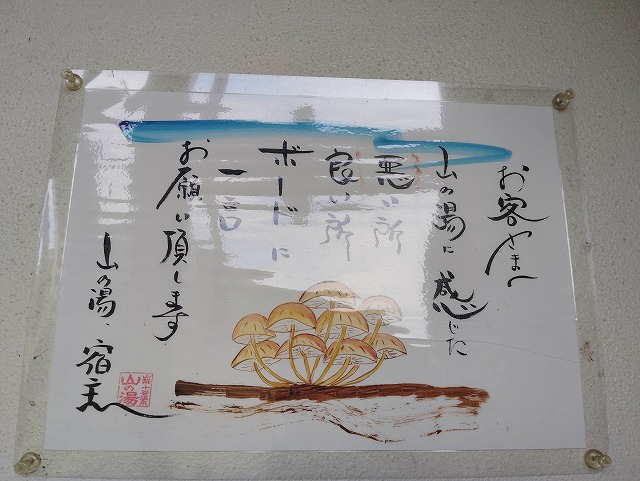 お客さまへ
山の湯に感じた
悪い所
良い所
ボードに
一言
お願い頂します
山の湯・宿主
山の湯